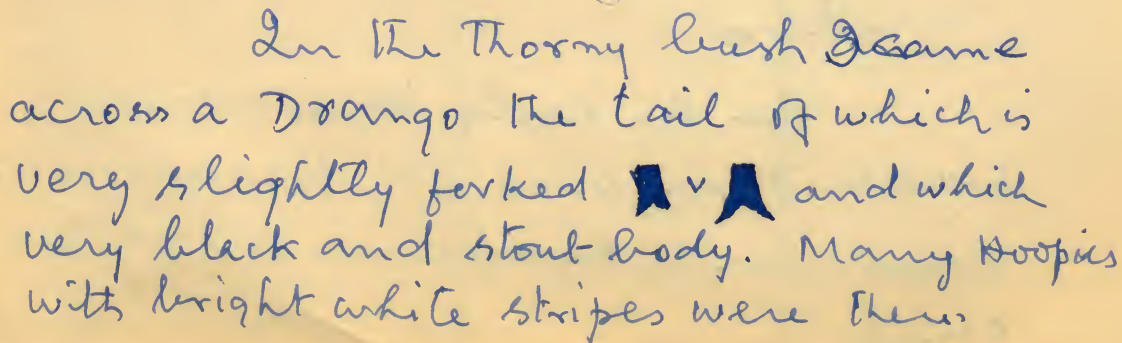 In the Thorny bush I came
across a Drango the tail of which is
very slightly forked v and which
very black and stout body. Many Hoopies
with bright white stripes were there.